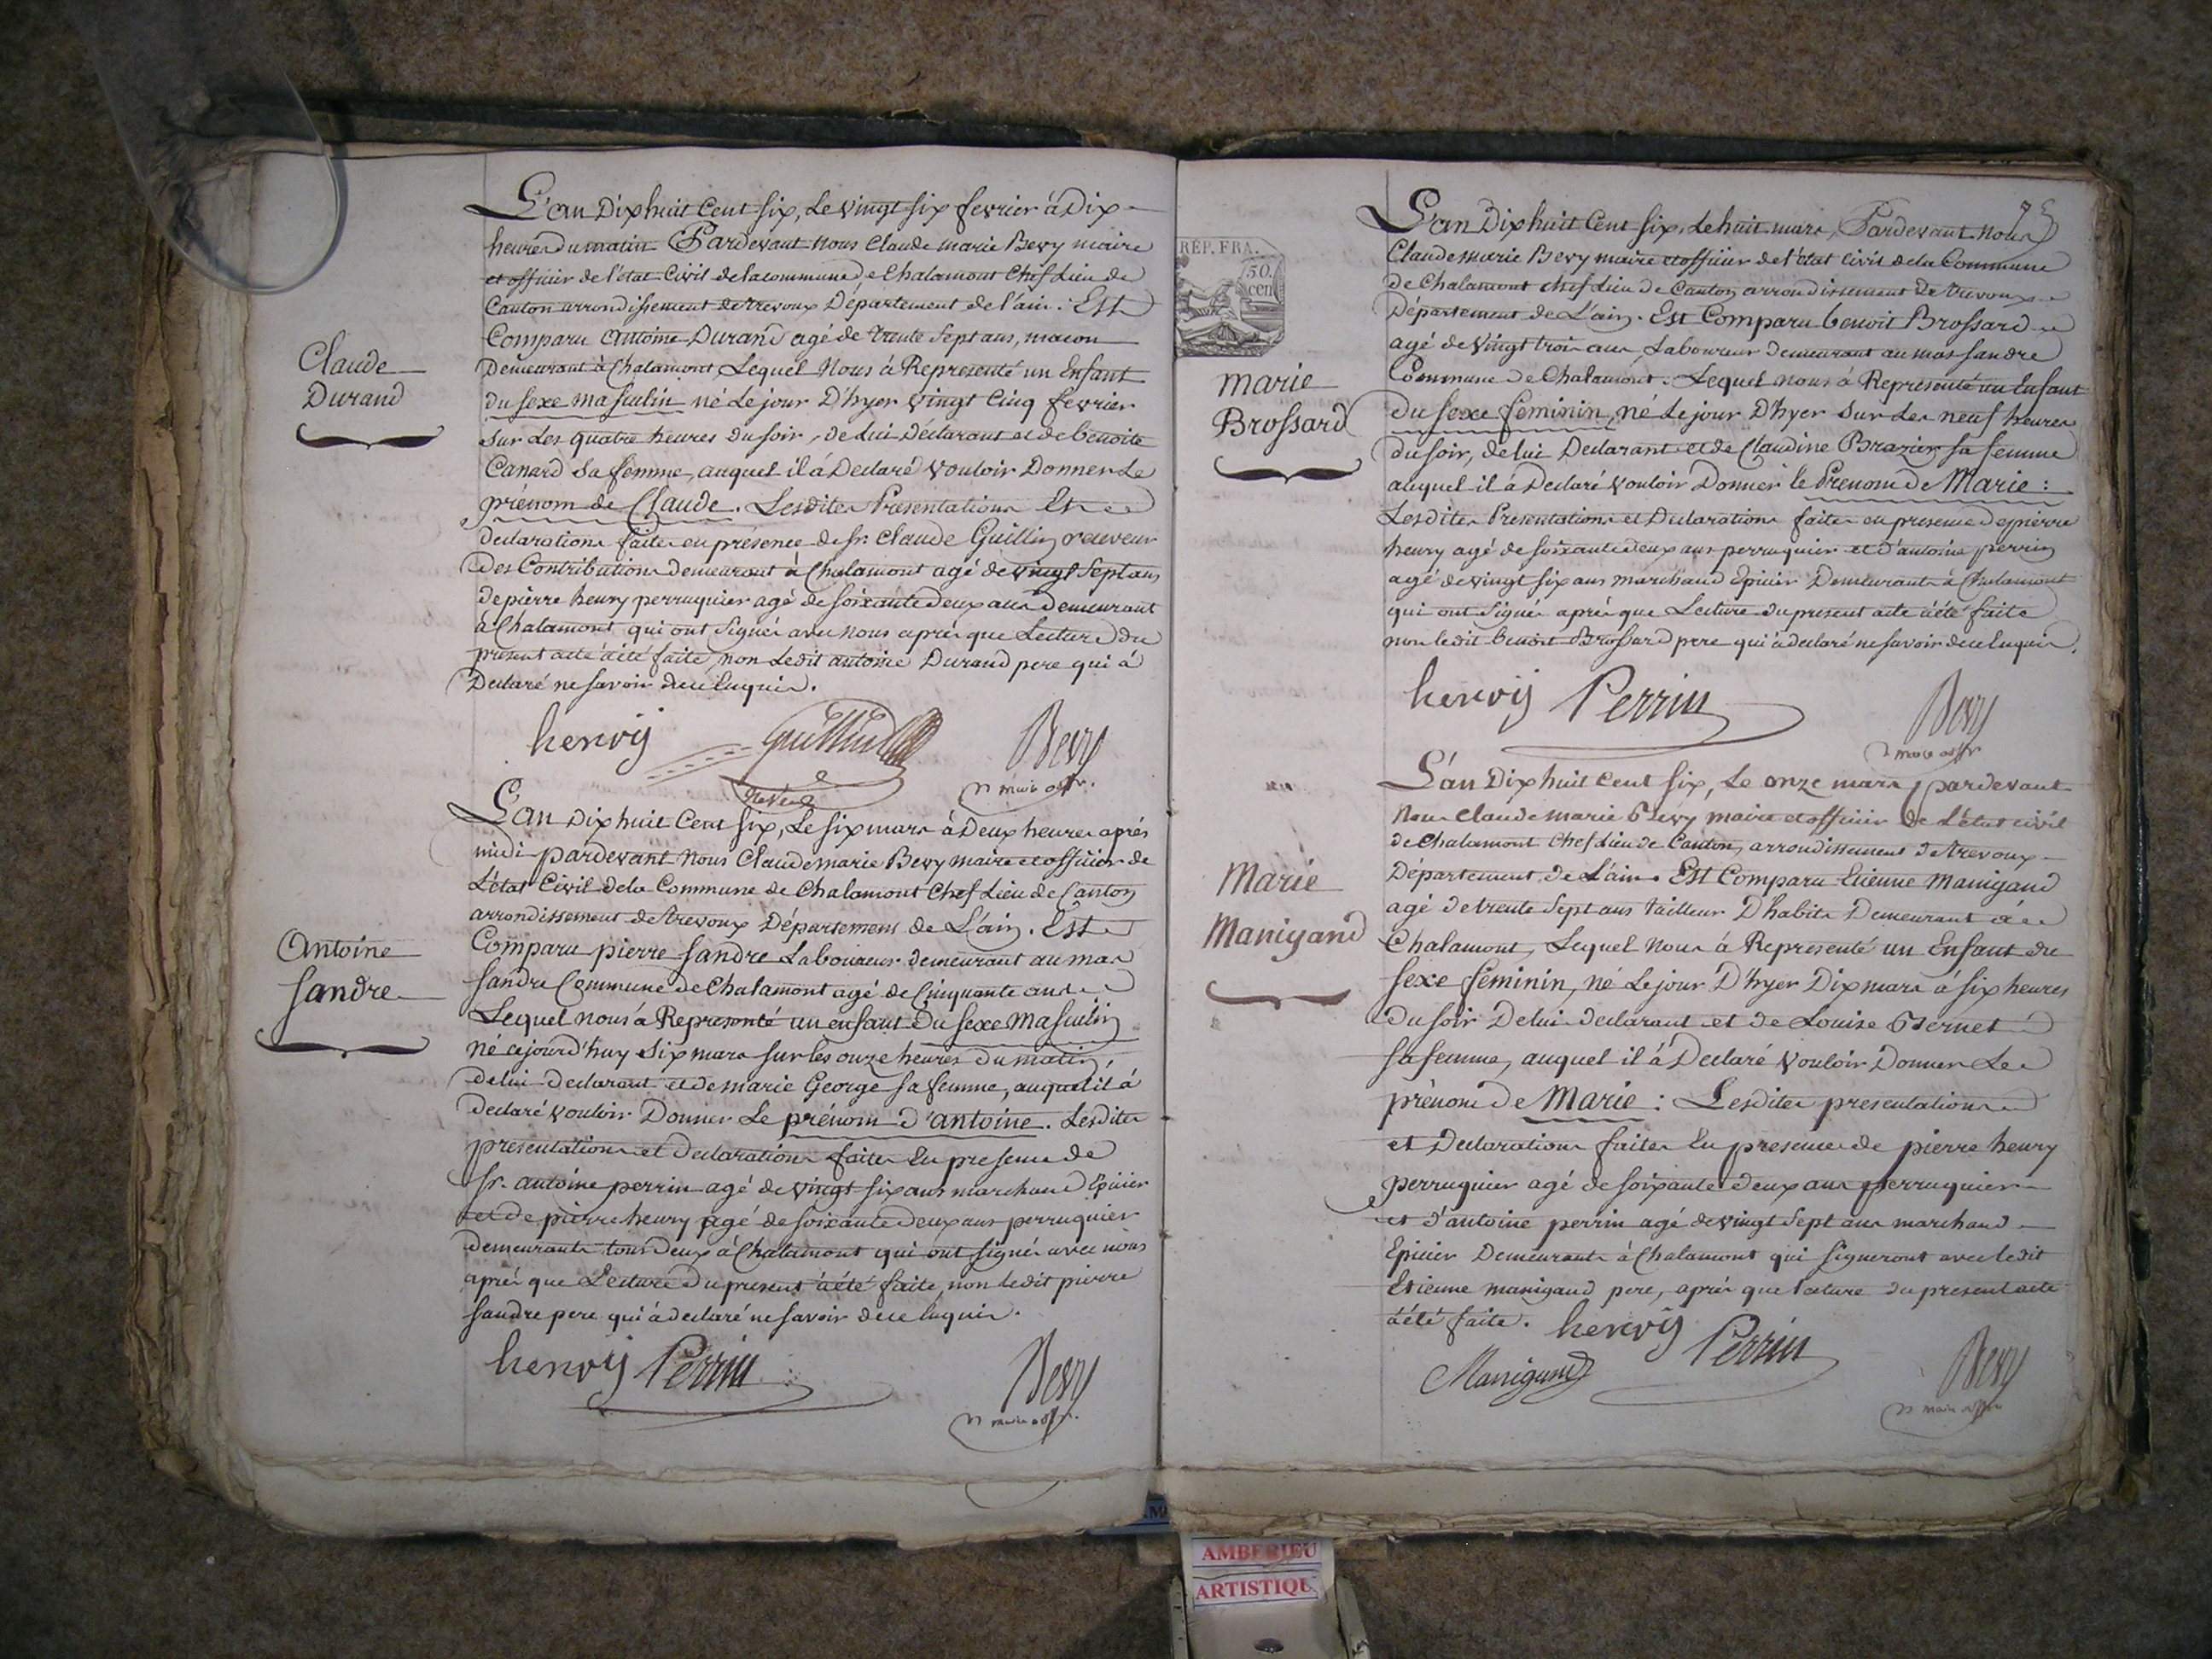 L'an Dix huit Cent six, Le vingt six fevrier à Dix
heures du matin Pardevant nous Claude Marie Bevy maire
et officier de l'état Civil de la commune de Chalamont Chef Lieu de
Canton arrondissement de trevoux Département de l'ain. Est
Comparu Antoine Durand agé de trente Sept ans, macon
Claude
Durand
Demeurant à Chalamont Lequel Nous à Representé un Enfant
du sexe masculin né Le jour D'hyer vingt Cinq fevrier
sur Les quatre heures du soir, de lui Déclarant et de benoite
Canard sa femme, auquel il à Declaré vouloir Donner Le
prénom de Claude. Lesdites Presentations Et
Declarations faites en présence de sr. Claude Guillin receveur
Des Contributions demeurant à Chalamont agé de vingt Sept ans
de pierre henry perruquier agé de soixante deux ans demeurant
à Chalamont qui ont signés avec nous après que Lecture du
present acte à été faite, non Ledit antoine Durand pere qui à
Declaré ne savoir de ce Enquis.
henrÿ Guillin Bevy
L'an Dix huit Cent six, Le six mars à Deux heures après
midi pardevant nous Claude marie Bevy maire et officier de
L'état Civil de la Commune de Chalamont Chef Lieu de Canton
arrondissement de trevoux Département de L'ain. Est
Antoine
Sandre
Comparu pierre Sandre Laboureur demeurant au mas
Sandre Commune de Chalamont agé de Cinquante ans
Lequel nous à Representé un enfant Du Sexe Masculin
né cejourd'huy six mars sur les onze heures du matin,
de lui declarant et de marie George sa femme, auquel il à
declaré vouloir Donner Le prénom d'antoine. Lesdites
presentations et declarations faites En presence de
sr. antoine perrin agé de vingt six ans marchand Epicier
et de pierre henry agé de soixante deux ans perruquier
demeurants tous deux à Chalamont qui ont signé avec nous
après que Lecture du present à été faite, non ledit pierre
Sandre pere qui à declaré ne savoir de ce Enquis.
henrÿ Perrin Bevy
RÉP. FRA.
50.
cen
L'an Dix huit Cent six, Le huit mars, Pardevant nous
Claude Marie Bevy maire et officier de l'état Civil de la Commune
de Chalamont chef Lieu de Canton arrondissement de trevoux
Département de L'ain. Est Comparu benoit Brossard
agé de vingt trois ans, Laboureur demeurant au mas sandre
marie
Brossard
Commune de Chalamont. Lequel nous à Representé un Enfant
du sexe feminin, né Le jour D'hyer sur Les neuf heures
du soir, de lui Declarant et de Claudine Brazier sa femme
auquel il à Declaré vouloir Donner le Prenom de Marie :
Lesdites Presentations et Declarations faites en presence de pierre
henry agé de soixante deux ans perruquier et d'antoine perrin
agé de vingt six ans marchand Epicier Demeurants à Chalamont
qui ont signés après que Lecture du present acte à été faite
non ledit benoit Brossard pere qui à declaré ne savoir de ce Enquis.
henrÿ Perrin Bevy
L'an Dix huit Cent six, Le onze mars pardevant
Nous Claude marie Bevy maire et officier de L'état civil
de Chalamont Chef Lieu de Canton, arrondissement de trevoux
Département de L'ain. Est Comparu Etienne Manigand
Marie
Manigand
agé de trente Sept ans tailleur D'habits Demeurant à
Chalamont, Lequel Nous à Representé un Enfant du
sexe feminin, né Le jour D'hyer Dix mars à six heures
du soir De lui declarant et de Louise Bernet
sa femme, auquel il à Declaré vouloir Donner Le
prénom de Marie : Lesdites presentations
et Declarations faites En presence de pierre henry
perruquier agé de soixante deux ans perruquier
et d'antoine perrin agé de vingt Sept ans marchand
Epicier Demeurants à Chalamont qui signeront avec ledit
Etienne manigand pere, après que Lecture du present acte
à été faite. henrÿ Perrin
Manigand Bevy
AMBERIEU
ARTISTIQU